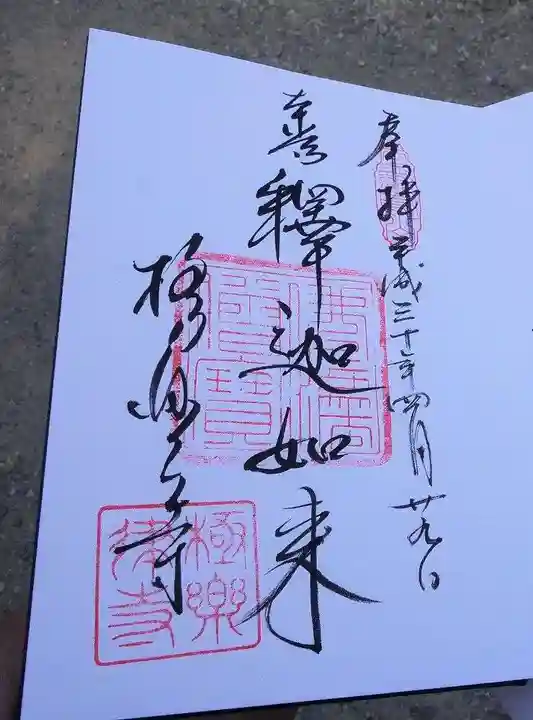 奉拝 平成三十年四月廿九日
本尊 釋迦如来
極楽寺
極樂律寺